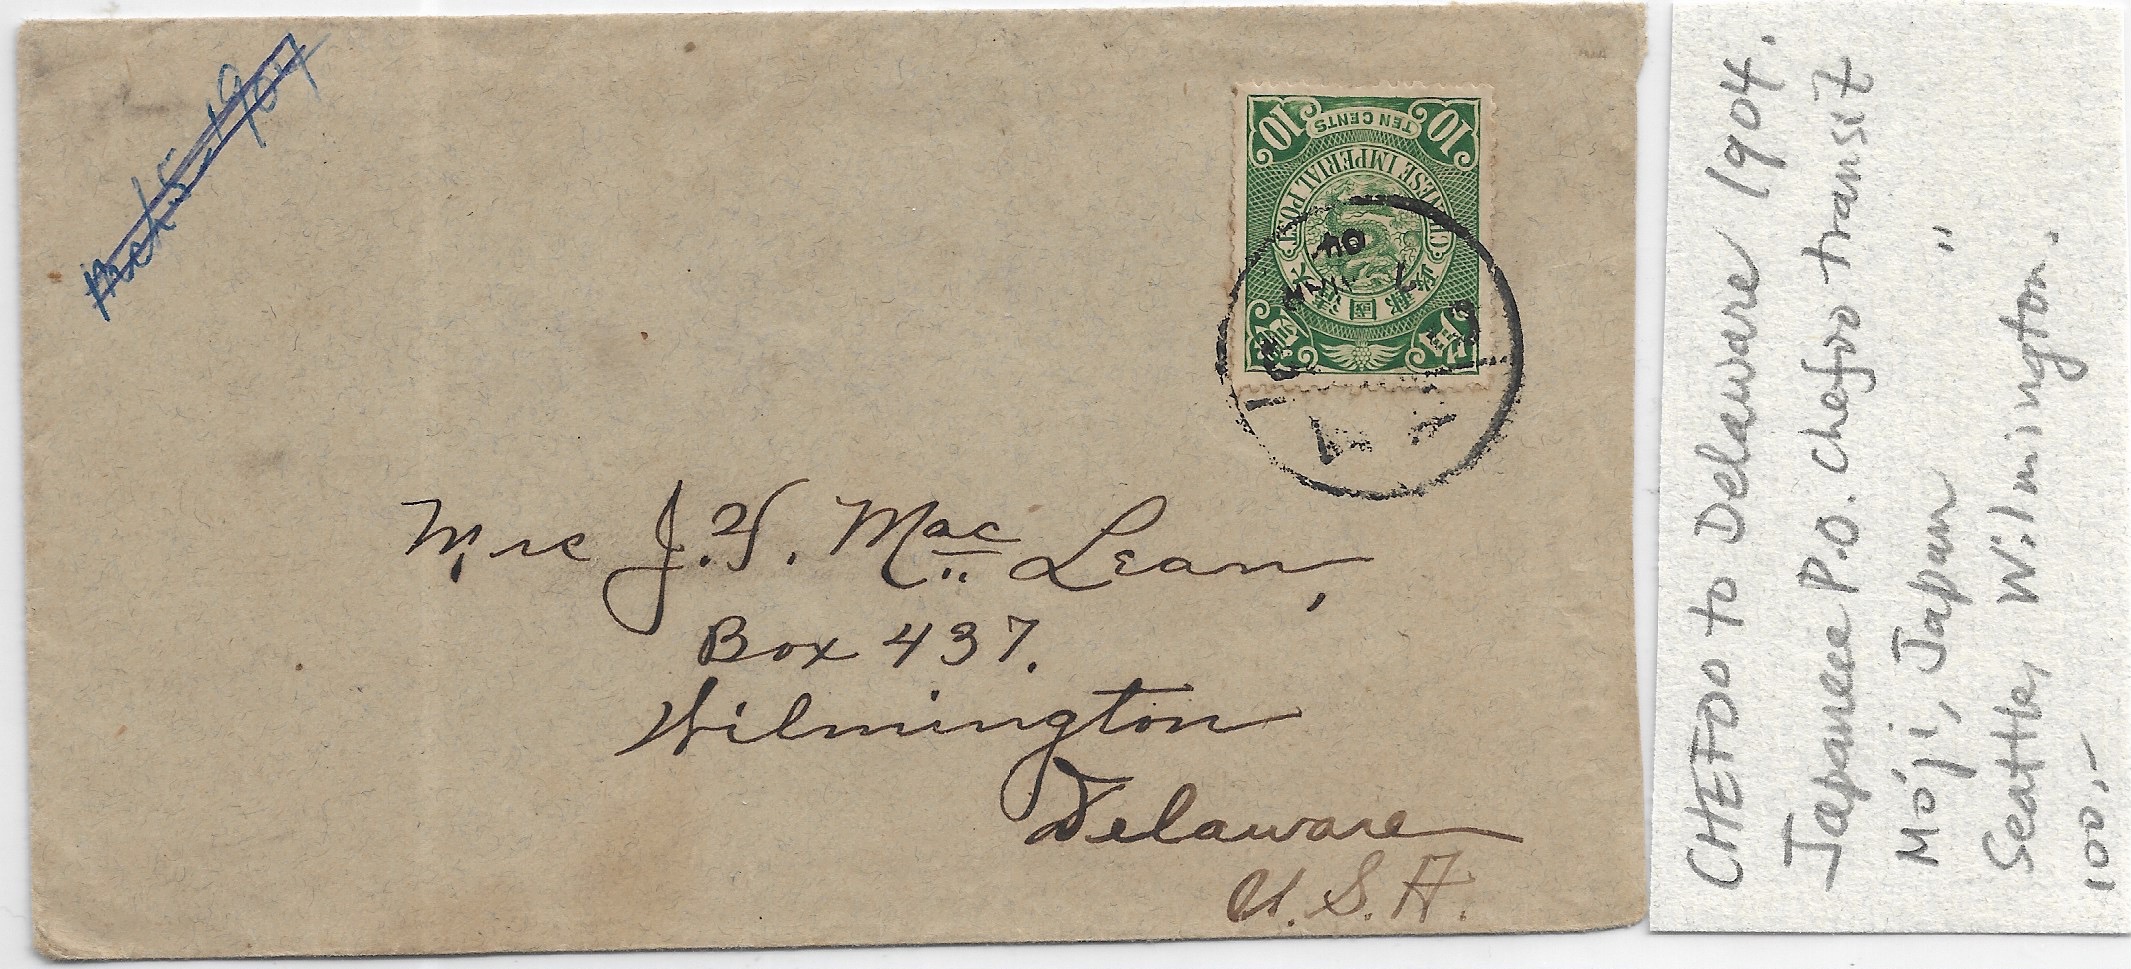 1904
10 TEN CENTS 10
CHINESE IMPERIAL POST
04
7
Mrs J. H. Mac Lean,
Box 437.
Wilmington
Delaware
U.S.A.
CHEFOO to Delaware 1904.
Japanese P.O. Chefoo transit
Moji, Japan "
Seattle, Wilmington.
100.-